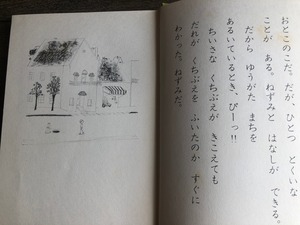 おとこのこだ。だが、ひとつ とくいな
ことが ある。ねずみと はなしが できる。
だから ゆうがた まちを
あるいているとき、ぴーっ!!
ちいさな くちぶえが きこえても
だれが くちぶえを ふいたのか すぐに
わかった。ねずみだ。